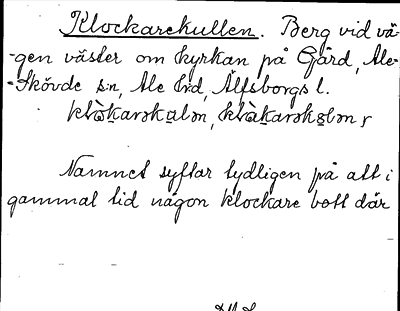 Klockarekullen. Berg vid vä-
-gen väster om kyrkan på Gärd, Ale-
-Skövde sn, Ale hd, Älfsborgs l.
Namnet syftar tydligen på att i
gammal tid någon klockare bott där